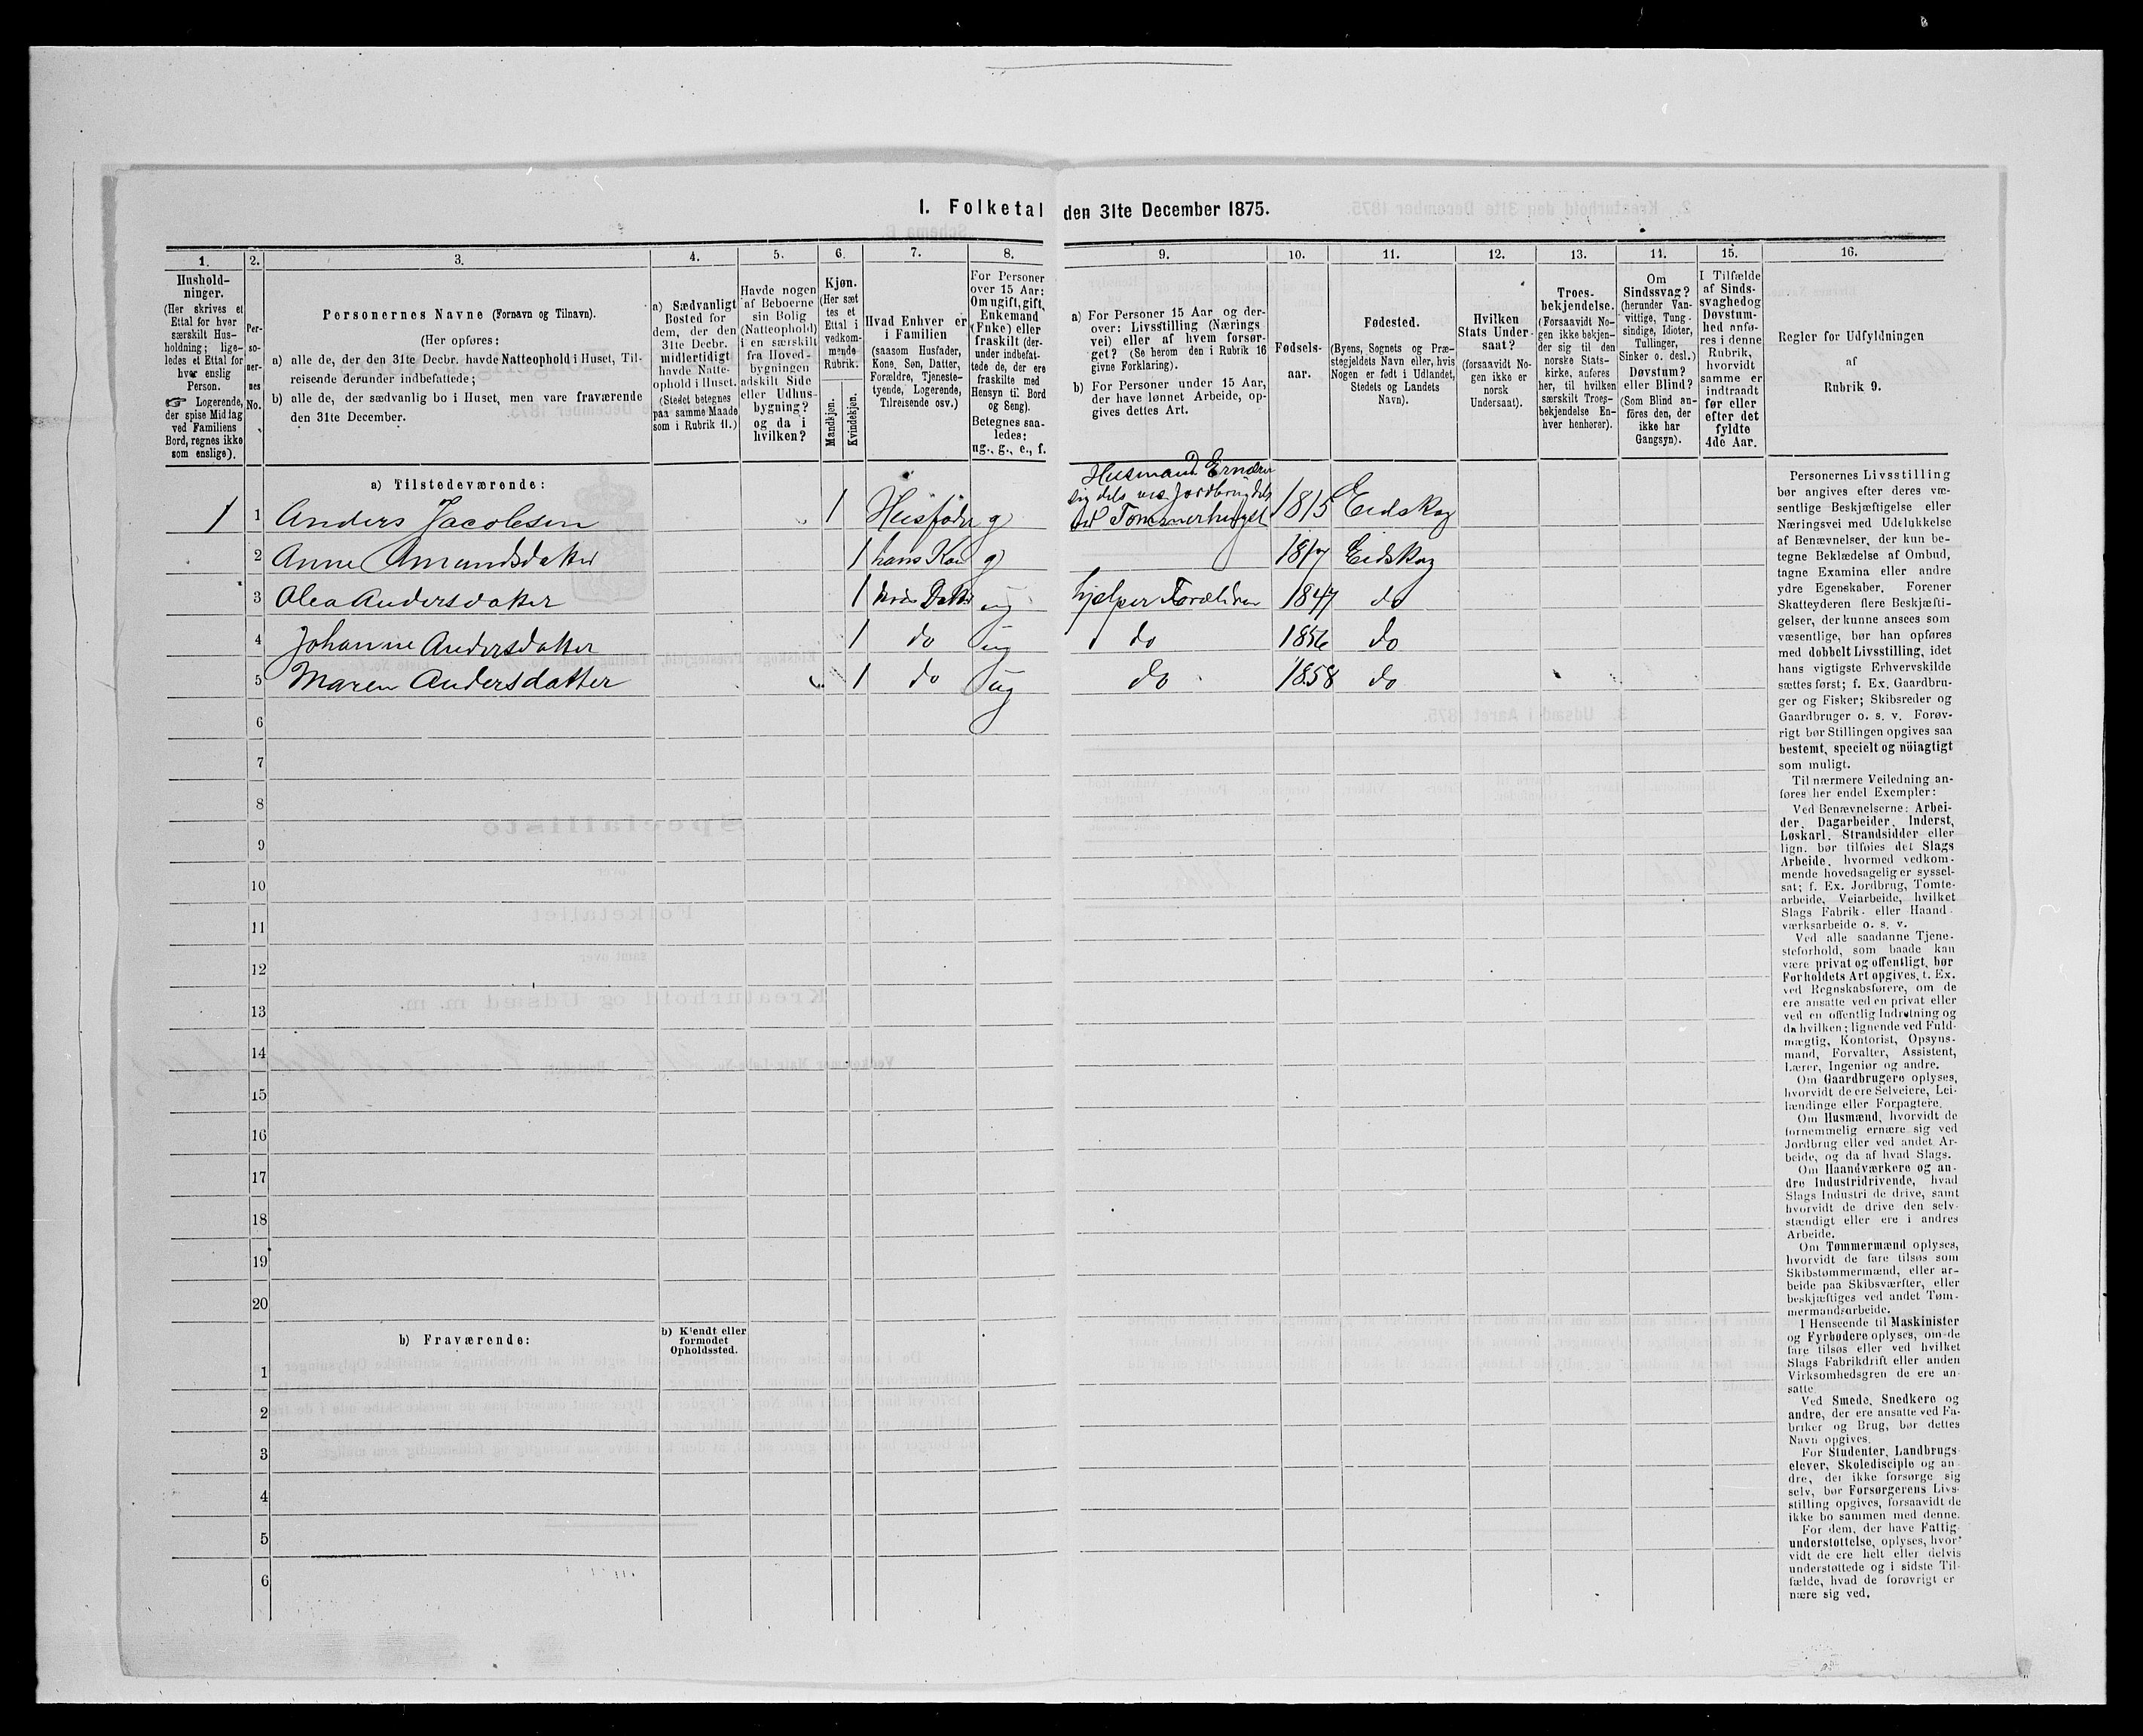 1. Folketal den 31te December 1875.
1.
2.
3.
4.
5.
6.
7.
8.
9.
10.
11.
12.
13.
14.
15.
16.
Hushold-
ninger.
(Her skrives et
Ettal for hver
særskilt Hus-
holdning; lige-
ledes et Ettal for
hver enslig
Person.
☞ Logerende,
der spise Middag
ved Familiens
Bord, regnes ikke
som enslige).
Per-
so-
ner-
nes
No.
Personernes Navne (Fornavn og Tilnavn).
(Her opføres:
a) alle de, der den 31te Decbr. havde Natteophold i Huset, Til-
reisende derunder indbefattede;
b) alle de, der sædvanlig bo i Huset, men vare fraværende
den 31te December.
a) Sædvanligt
Bosted for
dem, der den
31te Decbr.
midlertidigt
havde Natte-
ophold i Huset.
(Stedet betegnes
paa samme Maade
som i Rubrik 11.)
Havde nogen
af Beboerne
sin Bolig
(Natteophold)
i en særskilt
fra Hoved-
bygningen
adskilt Side
eller Udhus-
bygning?
og da i
hvilken?
Kjøn.
(Her sæt
tes et
Ettal i
vedkom-
mende
Rubrik.
Mandkjøn.
Kvindekjøn.
Hvad Enhver er
i Familien
(saasom Husfader,
Kone, Søn, Datter,
Forældre, Tjeneste-
tyende, Logerende,
Tilreisende osv.)
For Personer
over 15 Aar:
Om ugift, gift,
Enkemand
(Enke) eller
fraskilt (der-
under indbefat-
tede de, der ere
fraskilte med
Hensyn til Bord
og Seng).
Betegnes saa-
ledes:
ug., g., e., f.
a) For Personer 15 Aar og der-
over: Livsstilling (Nærings
vei) eller af hvem forsør-
get? (Se herom den i Rubrik 16
givne Forklaring).
b) For Personer under 15 Aar,
der have lønnet Arbeide, op-
gives dettes Art.
Fødsels-
aar.
Fødested.
(Byens, Sognets og Præ-
stegjeldets Navn eller, hvis
Nogen er født i Udlandet,
Stedets og Landets
Navn).
Hvilken
Stats Under-
saat?
(forsaavidt No-
gen ikke er
norsk
Undersaat).
Troes-
bekjendelse.
(Forsaavidt No-
gen ikke bekjen-
der sig til den
norske Stats-
kirke, anføres
her, til hvilken
særskilt Troes-
bekjendelse En-
hver henhører).
Om
Sindssvag?
(herunder Van-
vittige, Tung-
sindige, Idioter,
Tullinger,
Sinker o. desl.)
Døvstum?
eller Blind?
(Som Blind an-
föres den, der
ikke har
Gangsyn).
I Tilfælde
af Sinds-
svaghed og
Døvstum-
hed anfø-
res i denne
Rubrik,
hvorvidt
samme er
indtraadt
før eller
efter det
fyldte
4de Aar.
Regler for Udfyldningen
af
Rubrik 9.
a) Tilstedeværende:
Husmand Ernærer
sig dels ved Jordbrug dels
ved Tømmerhugst
1 1 Anders Jacobsen 1 Husfader g 1815 Eidskog
2 Anne Amundsdatter 1 hans Kone g 1817 Eidskog
3 Olea Andersdatter 1 hans Datter ug hjelper Forældrene 1847 do
4 Johanne Andersdatter 1 do ug do 1856 do
5 Maren Andersdatter 1 do ug do 1858 do
6
7
8
9
10
11
12
13
14
15
16
17
18
19
20
b) Fraværende:
b) Kjendt eller
formodet
Opholdssted.
1
2
3
4
5
6
Personernes Livsstilling
bør angives efter deres væ-
sentlige Beskjæftigelse eller
Næringsvei med Udelukkelse
af Benævnelser, der kun be-
tegne Beklædelse af Ombud,
tagne Examina eller andre
ydre Egenskaber. Forener
Skatteyderen flere Beskjæfti-
gelser, der kunne ansees som
væsentlige, bør han opføres
med dobbelt Livsstilling, idet
hans vigtigste Erhvervskilde
sættes først; f. Ex. Gaardbru-
ger og Fisker; Skibsreder og
Gaardbruger o. s. v. Forøv-
rigt bør Stillingen opgives saa
bestemt, specielt og nöiagtigt
som muligt.
Til nærmere Veiledning an-
føres her endel Exempler:
Ved Benævnelserne: Arbei-
der, Dagarbeider, Inderst,
Løskarl, Strandsidder eller
lign. bør tilføies det Slags
Arbeide, hvormed vedkom-
mende hovedsagelig er syssel-
sat; f. Ex. Jordbrug, Tomte-
arbeide, Veiarbeide, hvilket
Slags Fabrik- eller Haand-
værksarbeide o. s. v.
Ved alle saadanne Tjene-
steforhold, som baade kan
være privat og offentligt, bør
Forholdets Art opgives, t. Ex.
ved Regnskabsførere, om de
ere ansatte ved en privat eller
ved en offentlig Indretning og
da hvilken; lignende ved Fuld-
mægtig, Kontorist, Opsyns-
mand, Forvalter, Assistent,
Lærer, Ingeniør og andre.
Om Gaardbrugere oplyses,
hvorvidt de ere Selveiere, Lei-
lændinge eller Forpagtere.
Om Husmænd, hvorvidt de
fornemmelig ernære sig ved
Jordbrug eller ved andet Ar-
beide, og da af hvad Slags.
Om Haandværkere og an-
dre Industridrivende, hvad
Slags Industri de drive, samt
hvorvidt de drive den selv-
stændigt eller ere i andres
Arbeide.
Om Tømmermænd oplyses,
hvorvidt de fare tilsøs som
Skibstømmermænd, eller ar-
beide paa Skibsværfter, eller
beskjæftiges ved andet Tøm-
mermandsarbeide.
I Henseende til Maskinister
og Fyrbødere oplyses, om de
fare tilsøs eller ved hvilket
Slags Fabrikdrift eller anden
Virksomhedsgren de ere an-
satte.
Ved Smede, Snedkere og
andre, der ere ansatte ved Fa-
briker og Brug, bør dettes
Navn opgives.
For Studenter, Landbrugs-
elever, Skoledisciple og an-
dre, der ikke forsørge sig
selv, bør Forsørgerens Livs-
stilling opgives, forsaavidt de
ikke bo sammen med denne.
For dem, der have Fattig-
understøttelse, oplyses, hvor-
vidt de ere helt eller delvis
understøttede og i sidste Til-
fælde, hvad de forøvrigt er-
nære sig ved.